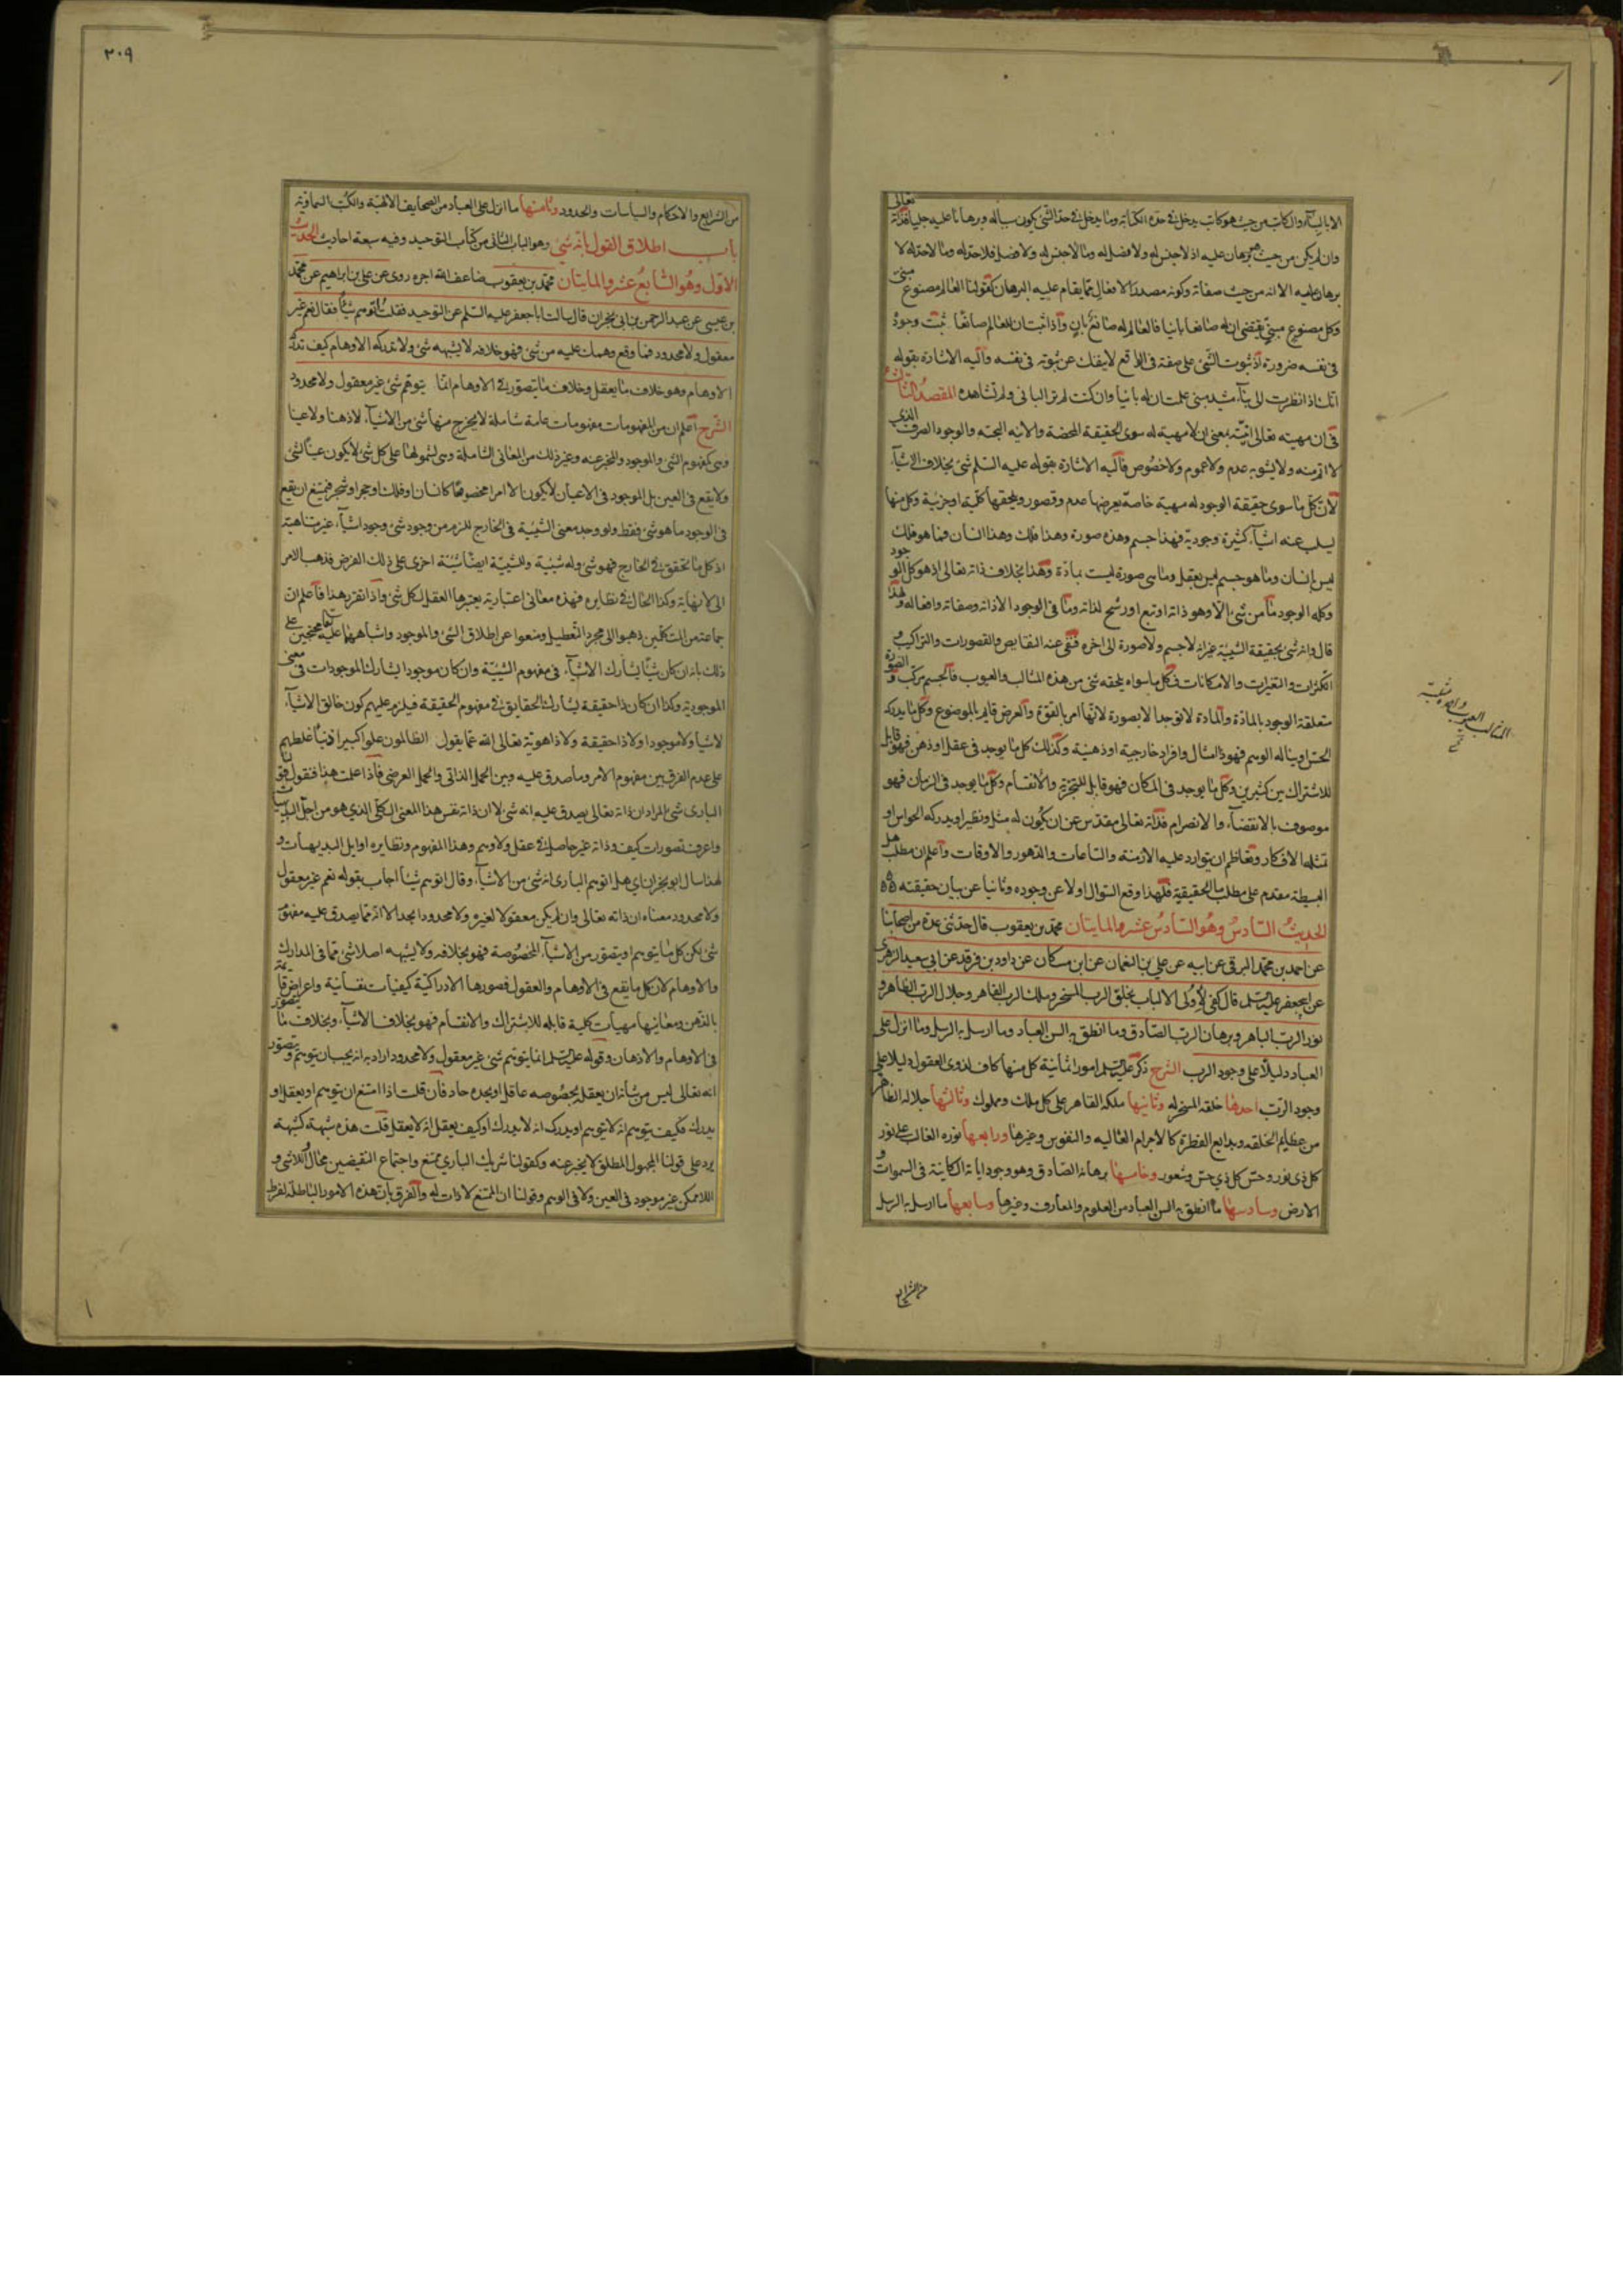 الا بالبناء والكاتب من حيث هو كاتب يدخل فى حده الكتابة وما يدخل فى حد الشئ يكون سبباله وبرهانا عليه جليا فذاته تعالى
وان لم يكن من حيث هو برهان عليه اذ لا جنس له ولا فصل له وما لا جنس له ولا فصل فلا حد له وما لا حد له لا
برهان عليه الا انه من حيث صفاته وكونه مصدر الافعال مما يقام عليه البرهان كقولنا العالم مصنوع مبنى
وكل مصنوع مبنى يقتضى ان له صانعا بانيا فالعالم له صانع بان واذا ثبت ان للعالم صانعا ثبت وجوده
فى نفسه ضرورة اذ ثبوت الشئ على صفة فى الواقع لا ينفك عن ثبوته فى نفسه واليه الاشارة بقوله
انك اذا نظرت الى بناء مشيد مبنى علمت ان له بانيا وان كنت لم تر البانى ولم تشاهده المقصد الثالث
فى ان مهيته تعالى انيته بمعنى ان لا مهية له سوى الحقيقة المحضة والانية البحتة والوجود الصرف الذى
لا اتم منه ولا يشوبه عدم ولا عموم ولا خصوص فاليه الاشارة بقوله عليه السلم شئ بخلاف الاشياء
لان كل ما سوى حقيقة الوجود له مهية خاصة يعرضها عدم وقصور ويلحقها كلية او جزئية وكل منها
يسلب عنه اشياء كثيرة وجودية فهذا جسم وهذه صورة وهذا فلك وهذا انسان فما هو فلك
ليس بانسان وما هو جسم ليس بعقل وما هى صورة ليست بمادة وهذا بخلاف ذاته تعالى اذ هو كل الوجود
وكله الوجود ما من شئ الا وهو ذاته او تبع او رشح لذاته وما فى الوجود الا ذاته وصفاته وافعاله ولهذا
قال وانه شئ بحقيقة الشيئية غير انه لا جسم ولا صورة الى اخره فنفى عنه النقايص والقصورات والتراكيب و
الكثرات والتغيرات والامكانات فكل ما سواه يلحقه شئ من هذه المثالب والعيوب فالجسم مركب والصورة
متعلقة الوجود بالمادة والمادة لا توجد الا بصورة لانها امر بالقوة والعرض قايم بالموضوع وكل ما يدركه
الحس او يناله الوهم فهو ذو امثال وافراد خارجية او ذهنية وكذلك كل ما يوجد فى عقل او ذهن فهو قابل
للاشتراك بين كثيرين وكل ما يوجد فى المكان فهو قابل للتجزية والانقسام وكل ما يوجد فى الزمان فهو
موصوف بالانقضاء والانصرام فذاته تعالى مقدس عن ان يكون له مثل ونظير او يدركه الحواس او
تمثله الافكار وتعاظم ان يتوارد عليه الازمنة والساعات والدهور والاوقات واعلم ان مطلب هل
البسيطة مقدم على مطلب ما الحقيقية فلهذا وقع السؤال اولا عن وجوده وثانيا عن بيان حقيقته
الحديث السادس وهو السادس عشر والمايتان محمد بن يعقوب قال حدثنى عدة من اصحابنا
عن احمد بن محمد البرقى عن ابيه عن على بن النعمان عن ابن مسكان عن داود بن فرقد عن ابى سعيد الزهرى
عن ابى جعفر عليه السلم قال كفى لاولى الالباب بخلق الرب المسخر وملك الرب القاهر وجلال الرب الظاهر و
نور الرب الباهر وبرهان الرب الصادق وما انطق به السن العباد وما ارسل به الرسل وما انزل على
العباد دليلا على وجود الرب الشرح ذكر عليه السلم امورا ثمانية كل منها كاف لذوى العقول دليلا على
وجود الرب احدها خلقه المسخر له وثانيها ملكه القاهر على كل ملك ومملوك وثالثها جلاله الظاهر
من عظايم الخلقة وبدايع الفطرة كالاجرام العالية والنفوس وغيرها ورابعها نوره الغالب على نور
كل ذى نور وحس كل ذى حس وشعور وخامسها برهانه الصادق وهو وجود اياته الكاينة فى السموات و
الارض وسادسها ما انطق به السن العباد من العلوم والمعارف وغيرها وسابعها ما ارسل به الرسل
من الشرايع
٢٠٩
من الشرايع والاحكام والسياسات والحدود وثامنها ما انزل على العباد من الصحايف الالهية والكتب السماوية
باب اطلاق القول بانه شئ وهو الباب الثانى من كتاب التوحيد وفيه سبعة احاديث الحديث
الاول وهو السابع عشر والمايتان محمد بن يعقوب ضاعف الله اجره روى عن على بن ابراهيم عن محمد
بن عيسى عن عبد الرحمن بن ابى نجران قال سالت ابا جعفر عليه السلم عن التوحيد فقلت اتوهم شيئا فقال نعم غير
معقول ولا محدود فما وقع وهمك عليه من شئ فهو خلافه لا يشبهه شئ ولا تدركه الاوهام كيف تدركه
الاوهام وهو خلاف ما يعقل وخلاف ما يتصور فى الاوهام انما يتوهم شئ غير معقول ولا محدود
الشرح اعلم ان من المفهومات مفهومات عامة شاملة لا يخرج منها شئ من الاشياء لا ذهنا ولا عينا
وهى كمفهوم الشئ والموجود والمخبر عنه وغير ذلك من المعانى الشاملة وهى لشمولها على كل شئ لا يكون عينا لشئ
ولا يقع فى العين بل الموجود فى الاعيان لا يكون الا امرا مخصوصا كانسان او فلك او حجر او شجر فيمتنع ان يقع
فى الوجود ما هو شئ فقط ولو وجد معنى الشيئية فى الخارج للزم من وجود شئ وجود اشياء غير متناهية
اذ كل ما تحقق فى الخارج فهو شئ وله شيئية وللشيئية ايضا شيئية اخرى على ذلك الفرض فذهب الامر
الى لا نهاية وكذا الحال فى نظايره فهذه معانى اعتبارية يعتبرها العقل لكل شئ واذا تقرر هذا فاعلم ان
جماعة من المتكلمين ذهبوا الى مجرد التعطيل ومنعوا عن اطلاق الشئ والموجود واشباههما عليه محتجين على
ذلك بانه ان كان شيئا يشارك الاشياء فى مفهوم الشيئية وان كان موجودا يشارك الموجودات فى معنى
الموجودية وكذا ان كان ذا حقيقة يشارك الحقايق فى مفهوم الحقيقة فيلزم عليهم كون خالق الاشياء
لا شيئا ولا موجودا ولا ذا حقيقة ولا ذا هوية تعالى الله عما يقول الظالمون علوا كبيرا
على عدم الفرق بين مفهوم الامر وما صدق عليه وبين الحمل الذاتى والحمل العرضى فاذا علمت هذا فنقول
البارى شئ المراد ان ذاته تعالى يصدق عليه انه شئ لا ان ذاته نفس هذا المعنى الكلى الذى هو من اجلى البديهيات
واعرف تصورات كيف وذاته غير حاصل فى عقل ولا وهم وهذا المفهوم ونظايره اوايل البديهيات و
لهذا سال ابو نجران اى هل اتوهم البارى انه شئ من الاشياء وقال اتوهم شيئا اجاب بقوله نعم غير معقول
ولا محدود معناه ان ذاته تعالى وان لم يكن معقولا لغيره ولا محدودا بحد الا انه مما يصدق عليه مفهوم
شئ لكن كل ما يتوهم او يتصور من الاشياء المخصوصة فهو بخلافه ولا يشبهه اصلا شئ مما فى المدارك
والاوهام لان كل ما يقع فى الاوهام والعقول فصورها الادراكية كيفيات نفسانية واعراض قايمة
بالذهن ومعانيها مهيات كلية قابلة للاشتراك والانقسام فهو بخلاف الاشياء وبخلاف ما يتصور
فى الاوهام والاذهان وقوله عليه السلم انما يتوهم شئ غير معقول ولا محدود اراد به انه يجب ان يتوهم ويتصور
انه تعالى ليس من شانه ان يعقل بخصوصه عاقل او يحده حاد فان قلت اذا امتنع ان يتوهم او يعقل او
يدرك فكيف يتوهم انه لا يتوهم او يدرك انه لا يدرك او كيف يعقل انه لا يعقل قلت هذه شبهة كشبهة
يرد على قولنا المجهول المطلق لا يخبر عنه وكقولنا شريك البارى ممتنع واجتماع النقيضين محال واللاشئ و
اللاممكن غير موجود فى العين ولا فى الوهم وقولنا ان الممتنع لا ذات له والفرق بان هذه الامور الباطلة لفرط